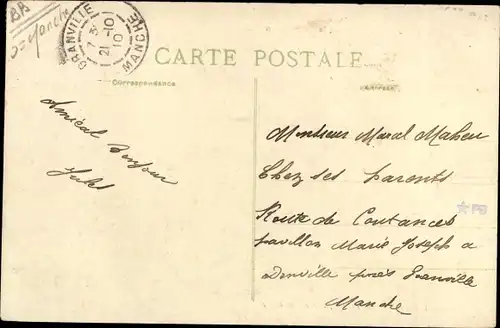 BB
D = Manche
GRANVILLE
7 3
21-10
10
MANCHE
CARTE POSTALE
Correspondance
Amical Bonjour
Monsieur Marcel Maheu
Chez ses parents
Route de Coutances
pavillon Marie Joseph a
Donville près Granville
Manche
PB